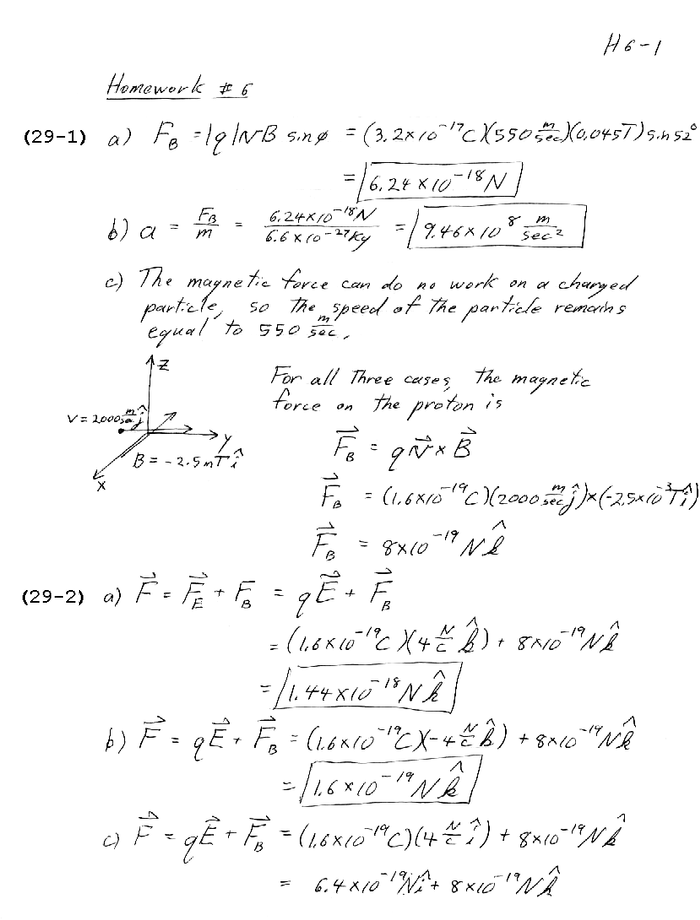 H6-1
Homework #6
(29-1) a) F_B = |q|vB sinφ = (3.2×10⁻¹⁹C)(550 m/sec)(0.045T) sin 52°
= 6.24×10⁻¹⁸N
b) a = F_B/m = 6.24×10⁻¹⁸N / 6.6×10⁻²⁷kg = 9.46×10⁸ m/sec²
c) The magnetic force can do no work on a charged
particle, so the speed of the particle remains
equal to 550 m/sec.
Z
For all three cases, the magnetic
force on the proton is
V = 2000 m/sec ĵ
y
B = -2.5mT î
x
F⃗_B = qv⃗ × B⃗
F⃗_B = (1.6×10⁻¹⁹C)(2000 m/sec ĵ)×(-2.5×10⁻³T î)
F⃗_B = 8×10⁻¹⁹ N k̂
(29-2) a) F⃗ = F⃗_E + F_B = qE⃗ + F⃗_B
= (1.6×10⁻¹⁹C)(4 N/C k̂) + 8×10⁻¹⁹N k̂
= 1.44×10⁻¹⁸N k̂
b) F⃗ = qE⃗ + F⃗_B = (1.6×10⁻¹⁹C)(-4 N/C k̂) + 8×10⁻¹⁹N k̂
= 1.6×10⁻¹⁹ N k̂
c) F⃗ = qE⃗ + F⃗_B = (1.6×10⁻¹⁹C)(4 N/C î) + 8×10⁻¹⁹N k̂
= 6.4×10⁻¹⁹N î + 8×10⁻¹⁹N k̂